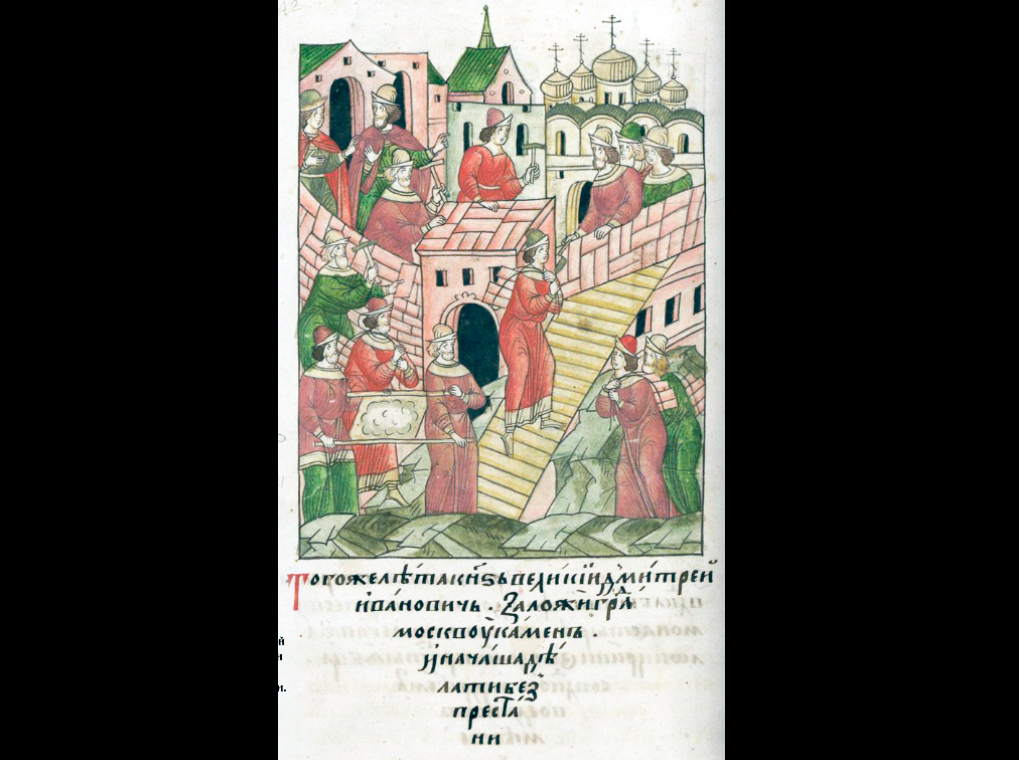 Тогожелѣтакн҃зьвеликїидми́трей
ива́новичь . Заложи́гра́д
москвоу́ка́менъ .
ӥнача́шадѣ́
латибез
преста́
ни
й
и
и.